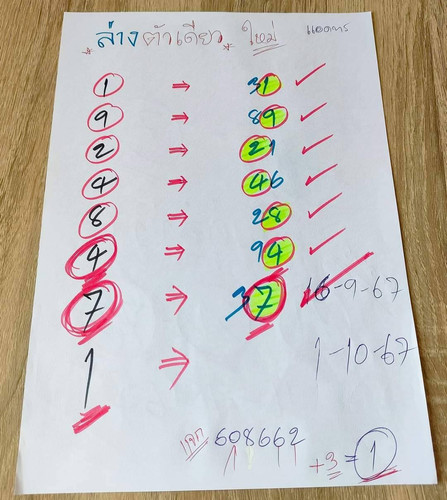 *ล่างตัวเดียว* ใหม่
1 ⇒ 31 ✓
9 ⇒ 89 ✓
2 ⇒ 21 ✓
4 ⇒ 46 ✓
8 ⇒ 28 ✓
4 ⇒ 94 ✓
7 ⇒ 37 ✓ 16-9-67
1 ⇒ 1-10-67
608662 +3 = 1